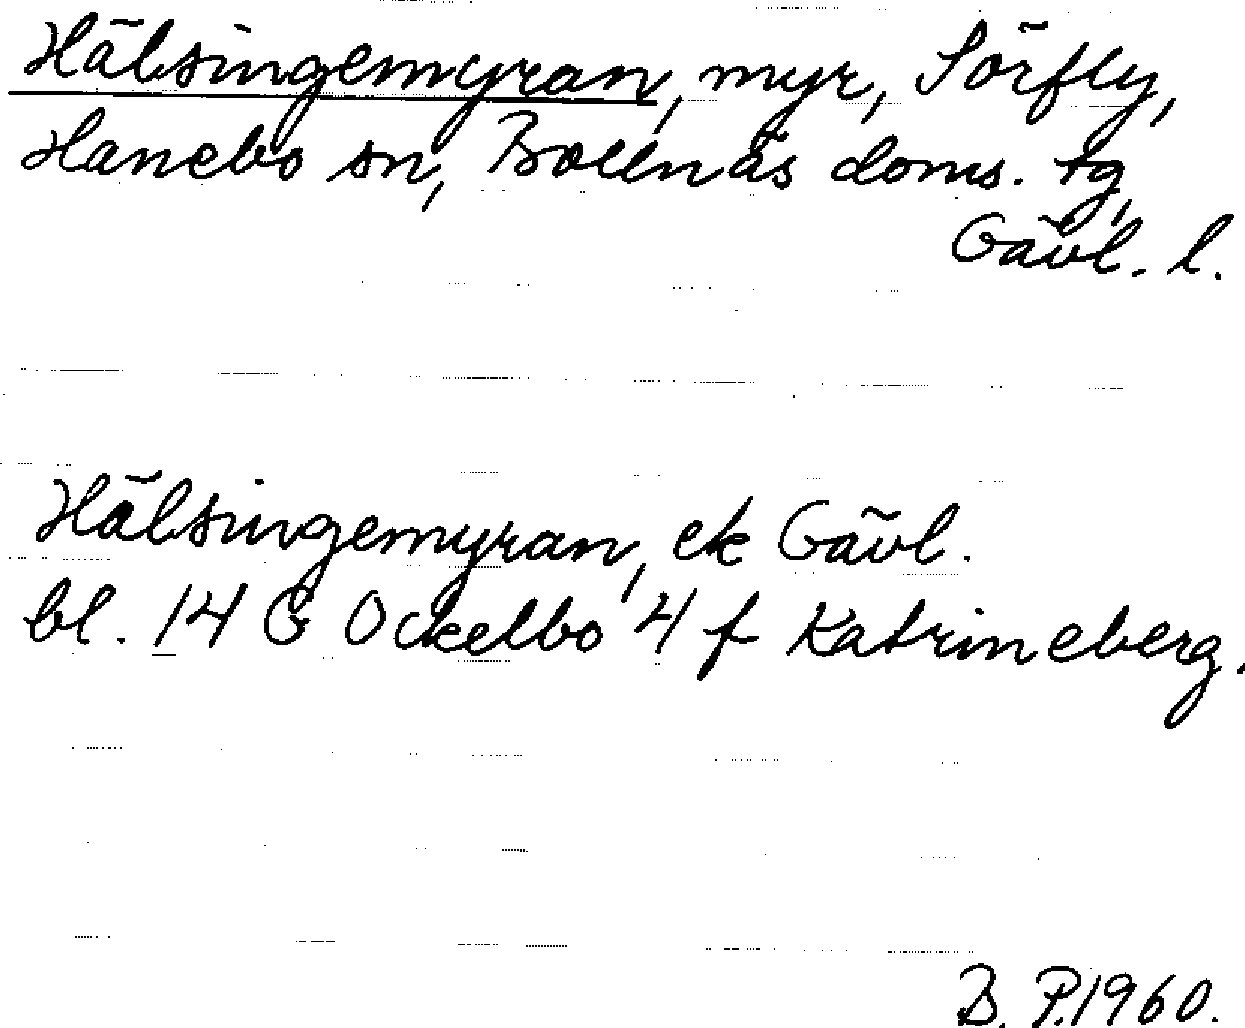 Hälsingemyran, myr, Sörfly,
Hanebo sn, Bollnäs doms. tg,
Gävl. l.
Hälsingemyran, ek Gävl.
bl. 14 G Ockelbo 4 f Katrineberg.
B. P. 1960.